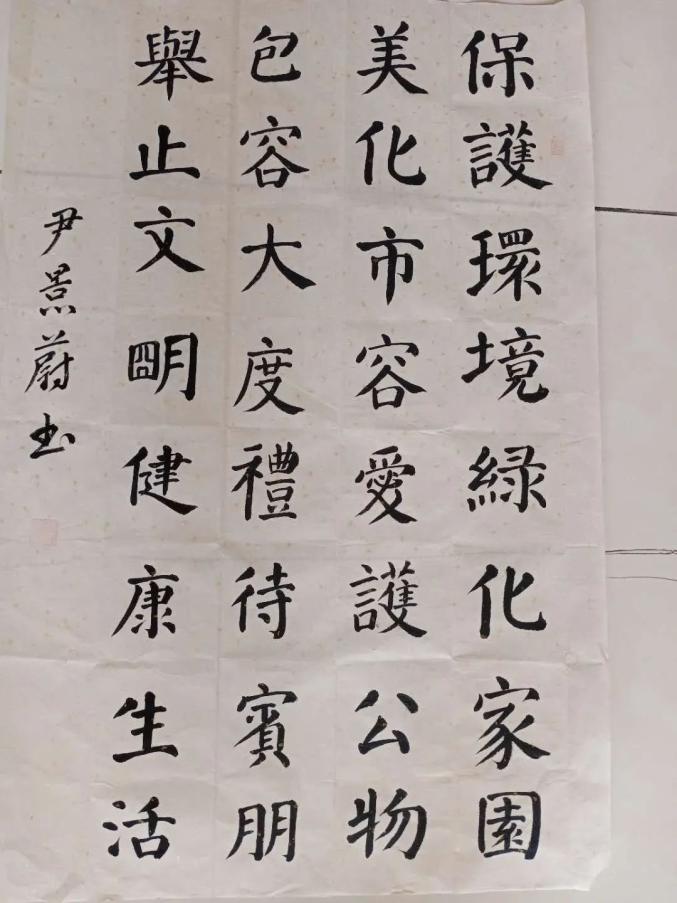 保護環境綠化家園
美化市容愛護公物
包容大度禮待賓朋
舉止文明健康生活
尹景蔚书